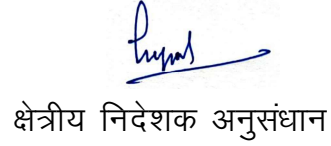 क्षेत्रीय निदेशक अनुसंधान